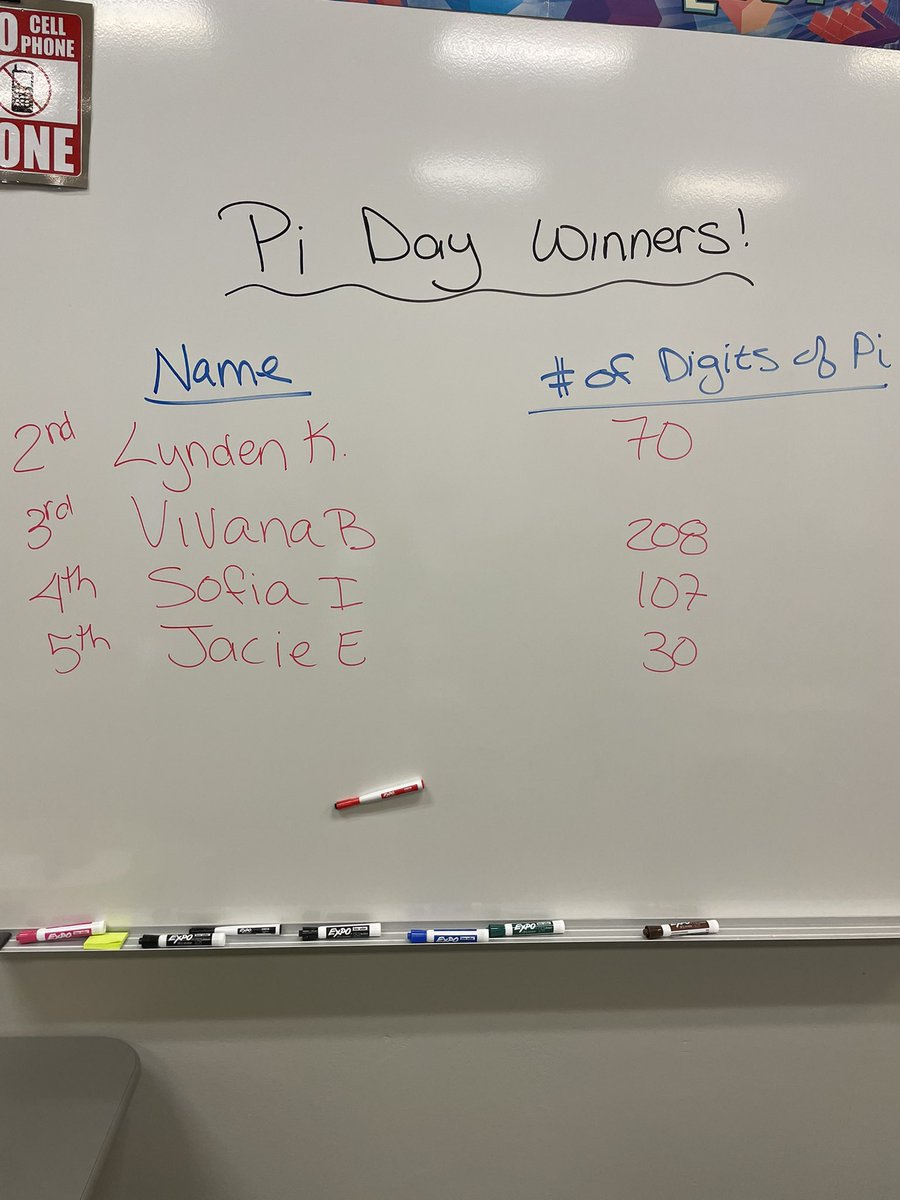 CELL
PHONE
ONE
Pi Day Winners!
Name # of Digits of Pi
2nd Lynden K. 70
3rd Vivana B 208
4th Sofia I 107
5th Jacie E 30
EXPO
EXPO
EXPO
EXPO
EXPO
EXPO